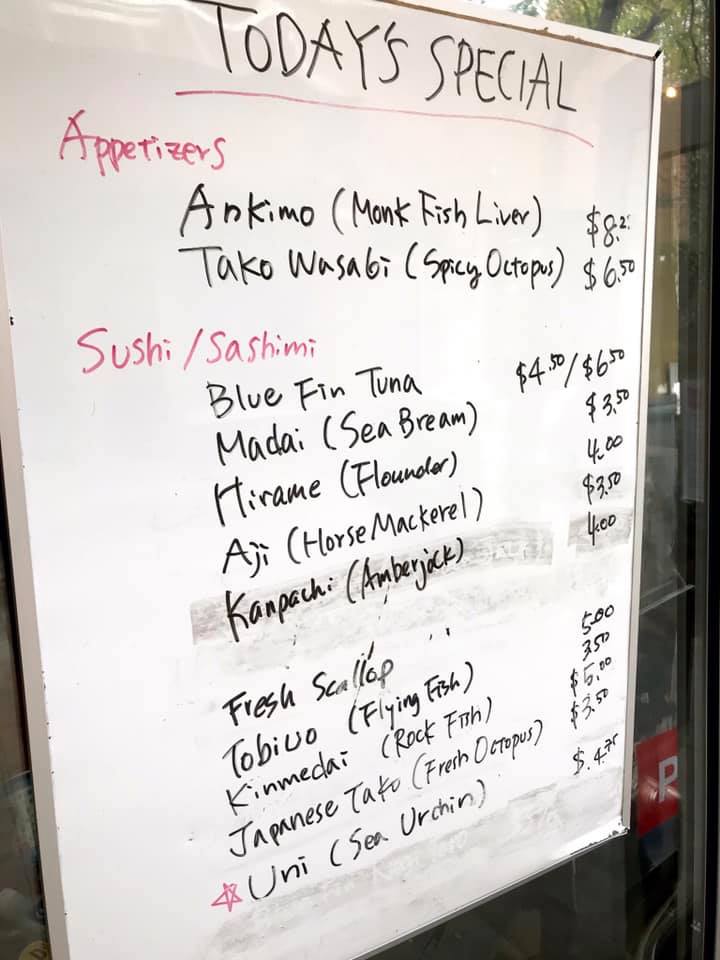 TODAY'S SPECIAL
Appetizers
Ankimo (Monk Fish Liver)
Tako Wasabi (Spicy Octopus) $6.50
Sushi/Sashimi
Blue Fin Tuna $4.50/$6.50
Madai (Sea Bream) $3.50
Hirame (Flounder) 4.00
Aji (Horse Mackerel) $3.50
Kanpachi (Amberjack) 4.00
Fresh Scallop 5.00
Tobiuo (Flying Fish) 3.50
Kinmedai (Rock Fish) $5.00
Japanese Tako (Fresh Octopus) $3.50
Uni (Sea Urchin) $4.75
P